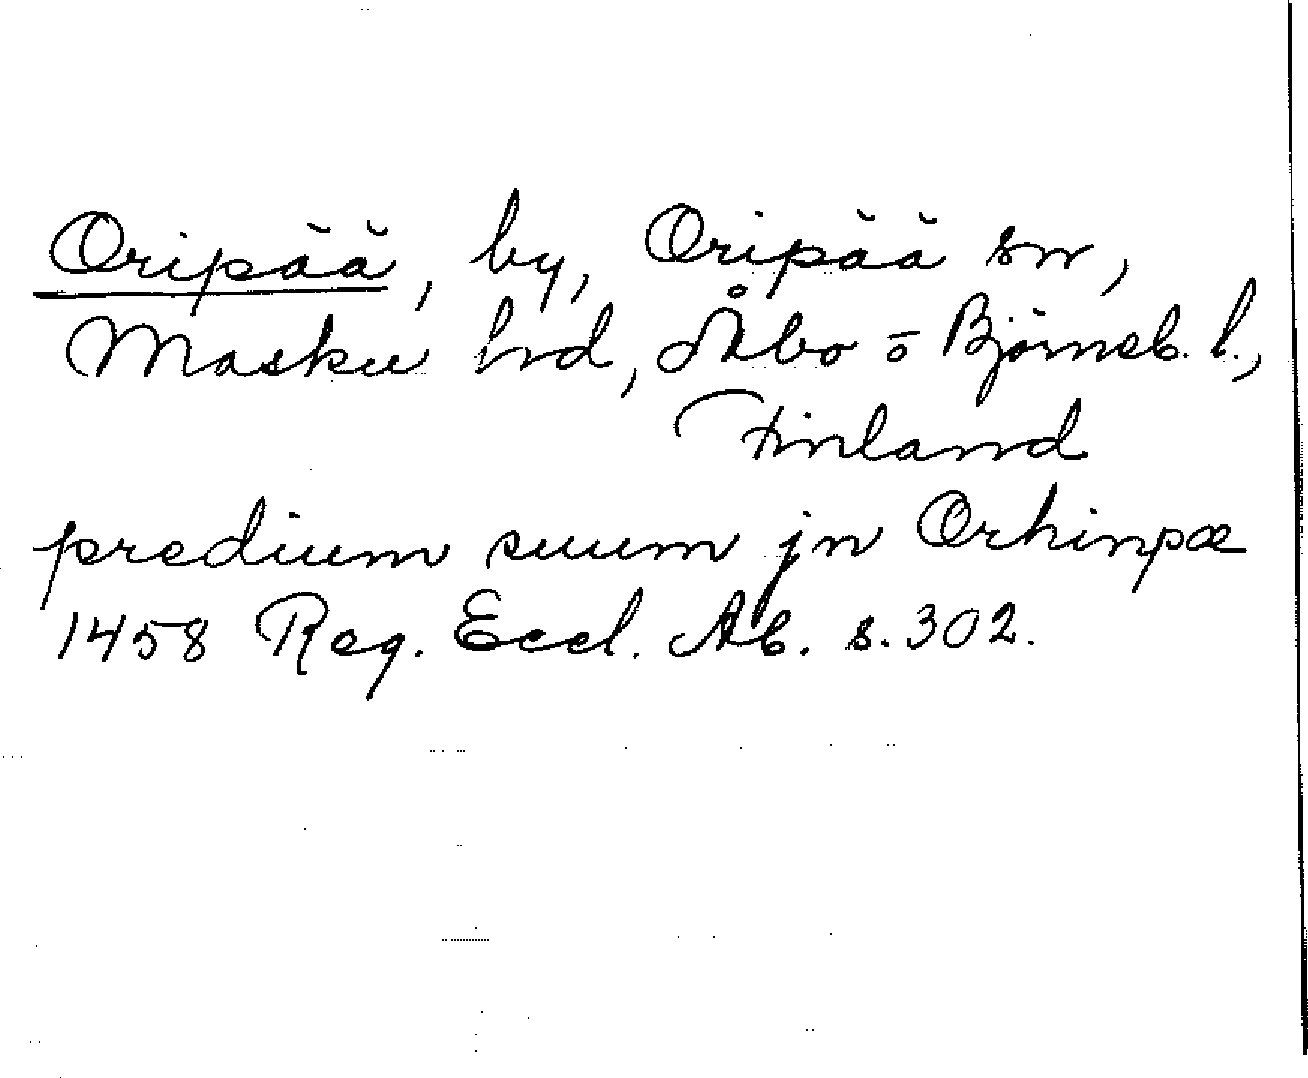 Oripää, by, Oripää sn,
Masku hd, Åbo o Björneb. l.,
Finland
predium suum jn Orhinpæ
1458 Reg. Eccl. Ab. s. 302.